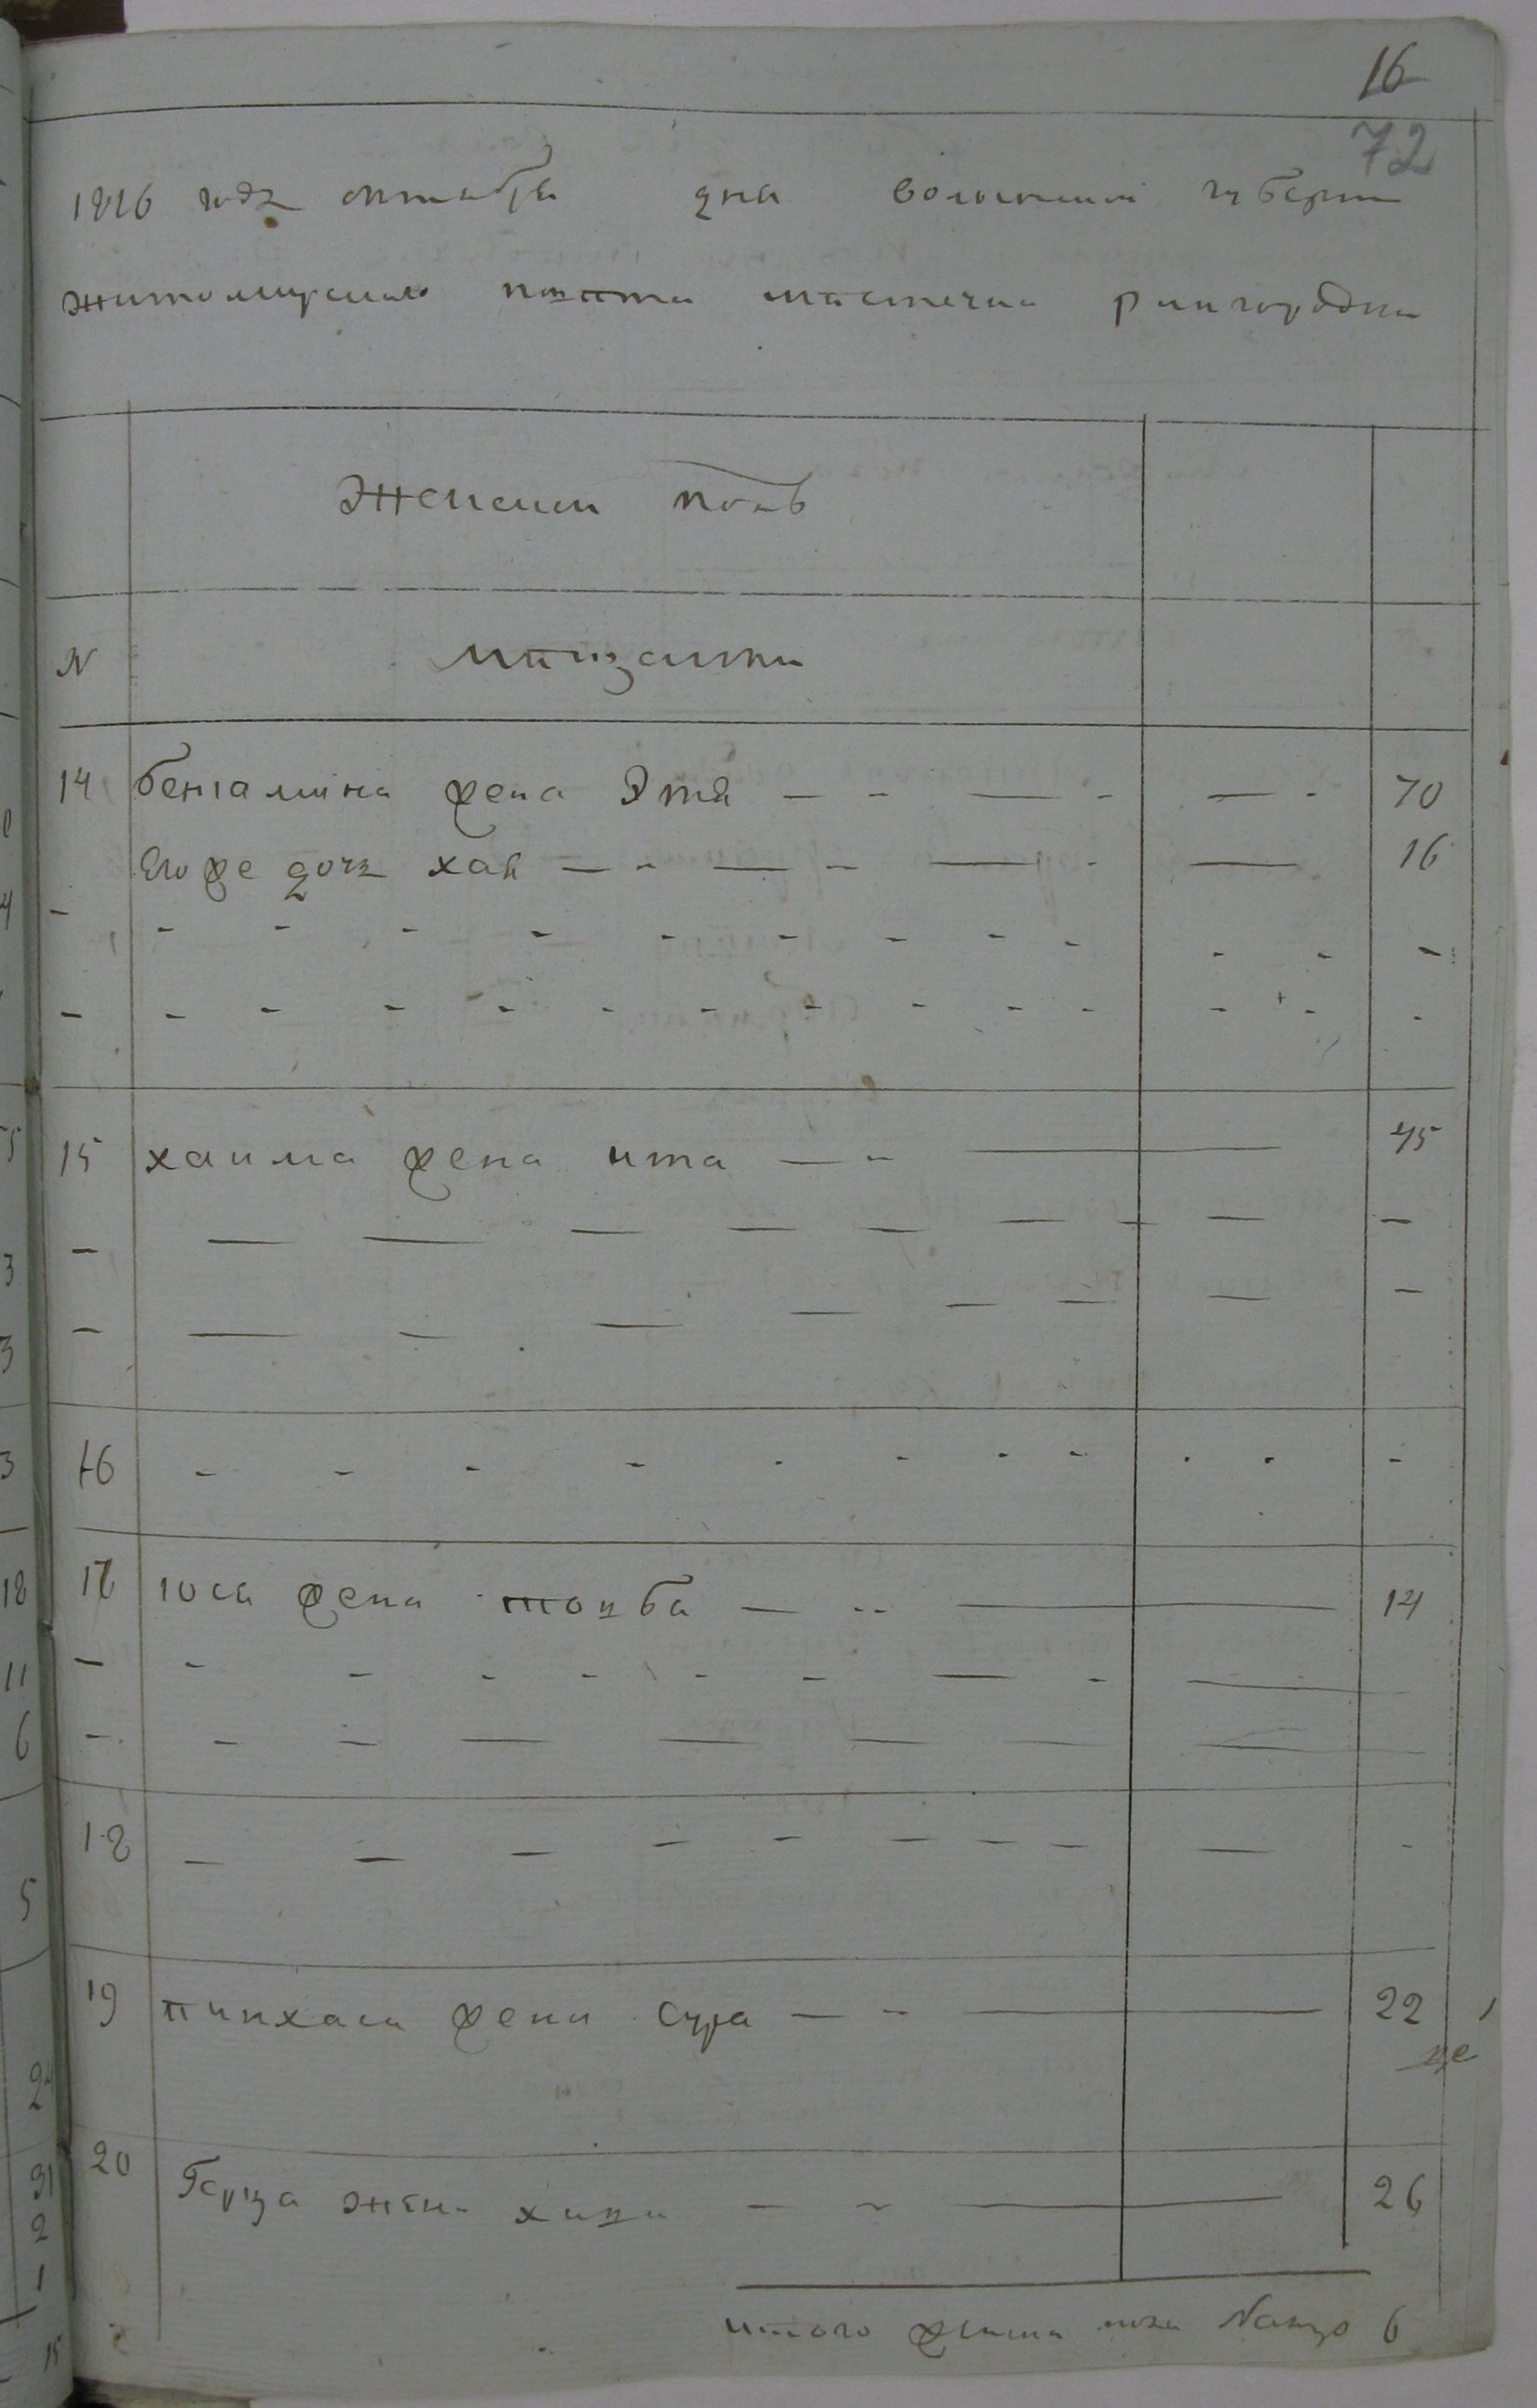 16
72
1816 года октября дня волынской губерни
житомирского повета местечка
Женский полъ
N мещанки
14 бениамина жена Этя 70
Его же дочь хая 16
15 хаима жена ита 45
16
17 юся жена тоцба 14
18
19 пинхаса жена сура 22
20 Герца жена 26
итого женска пола 6